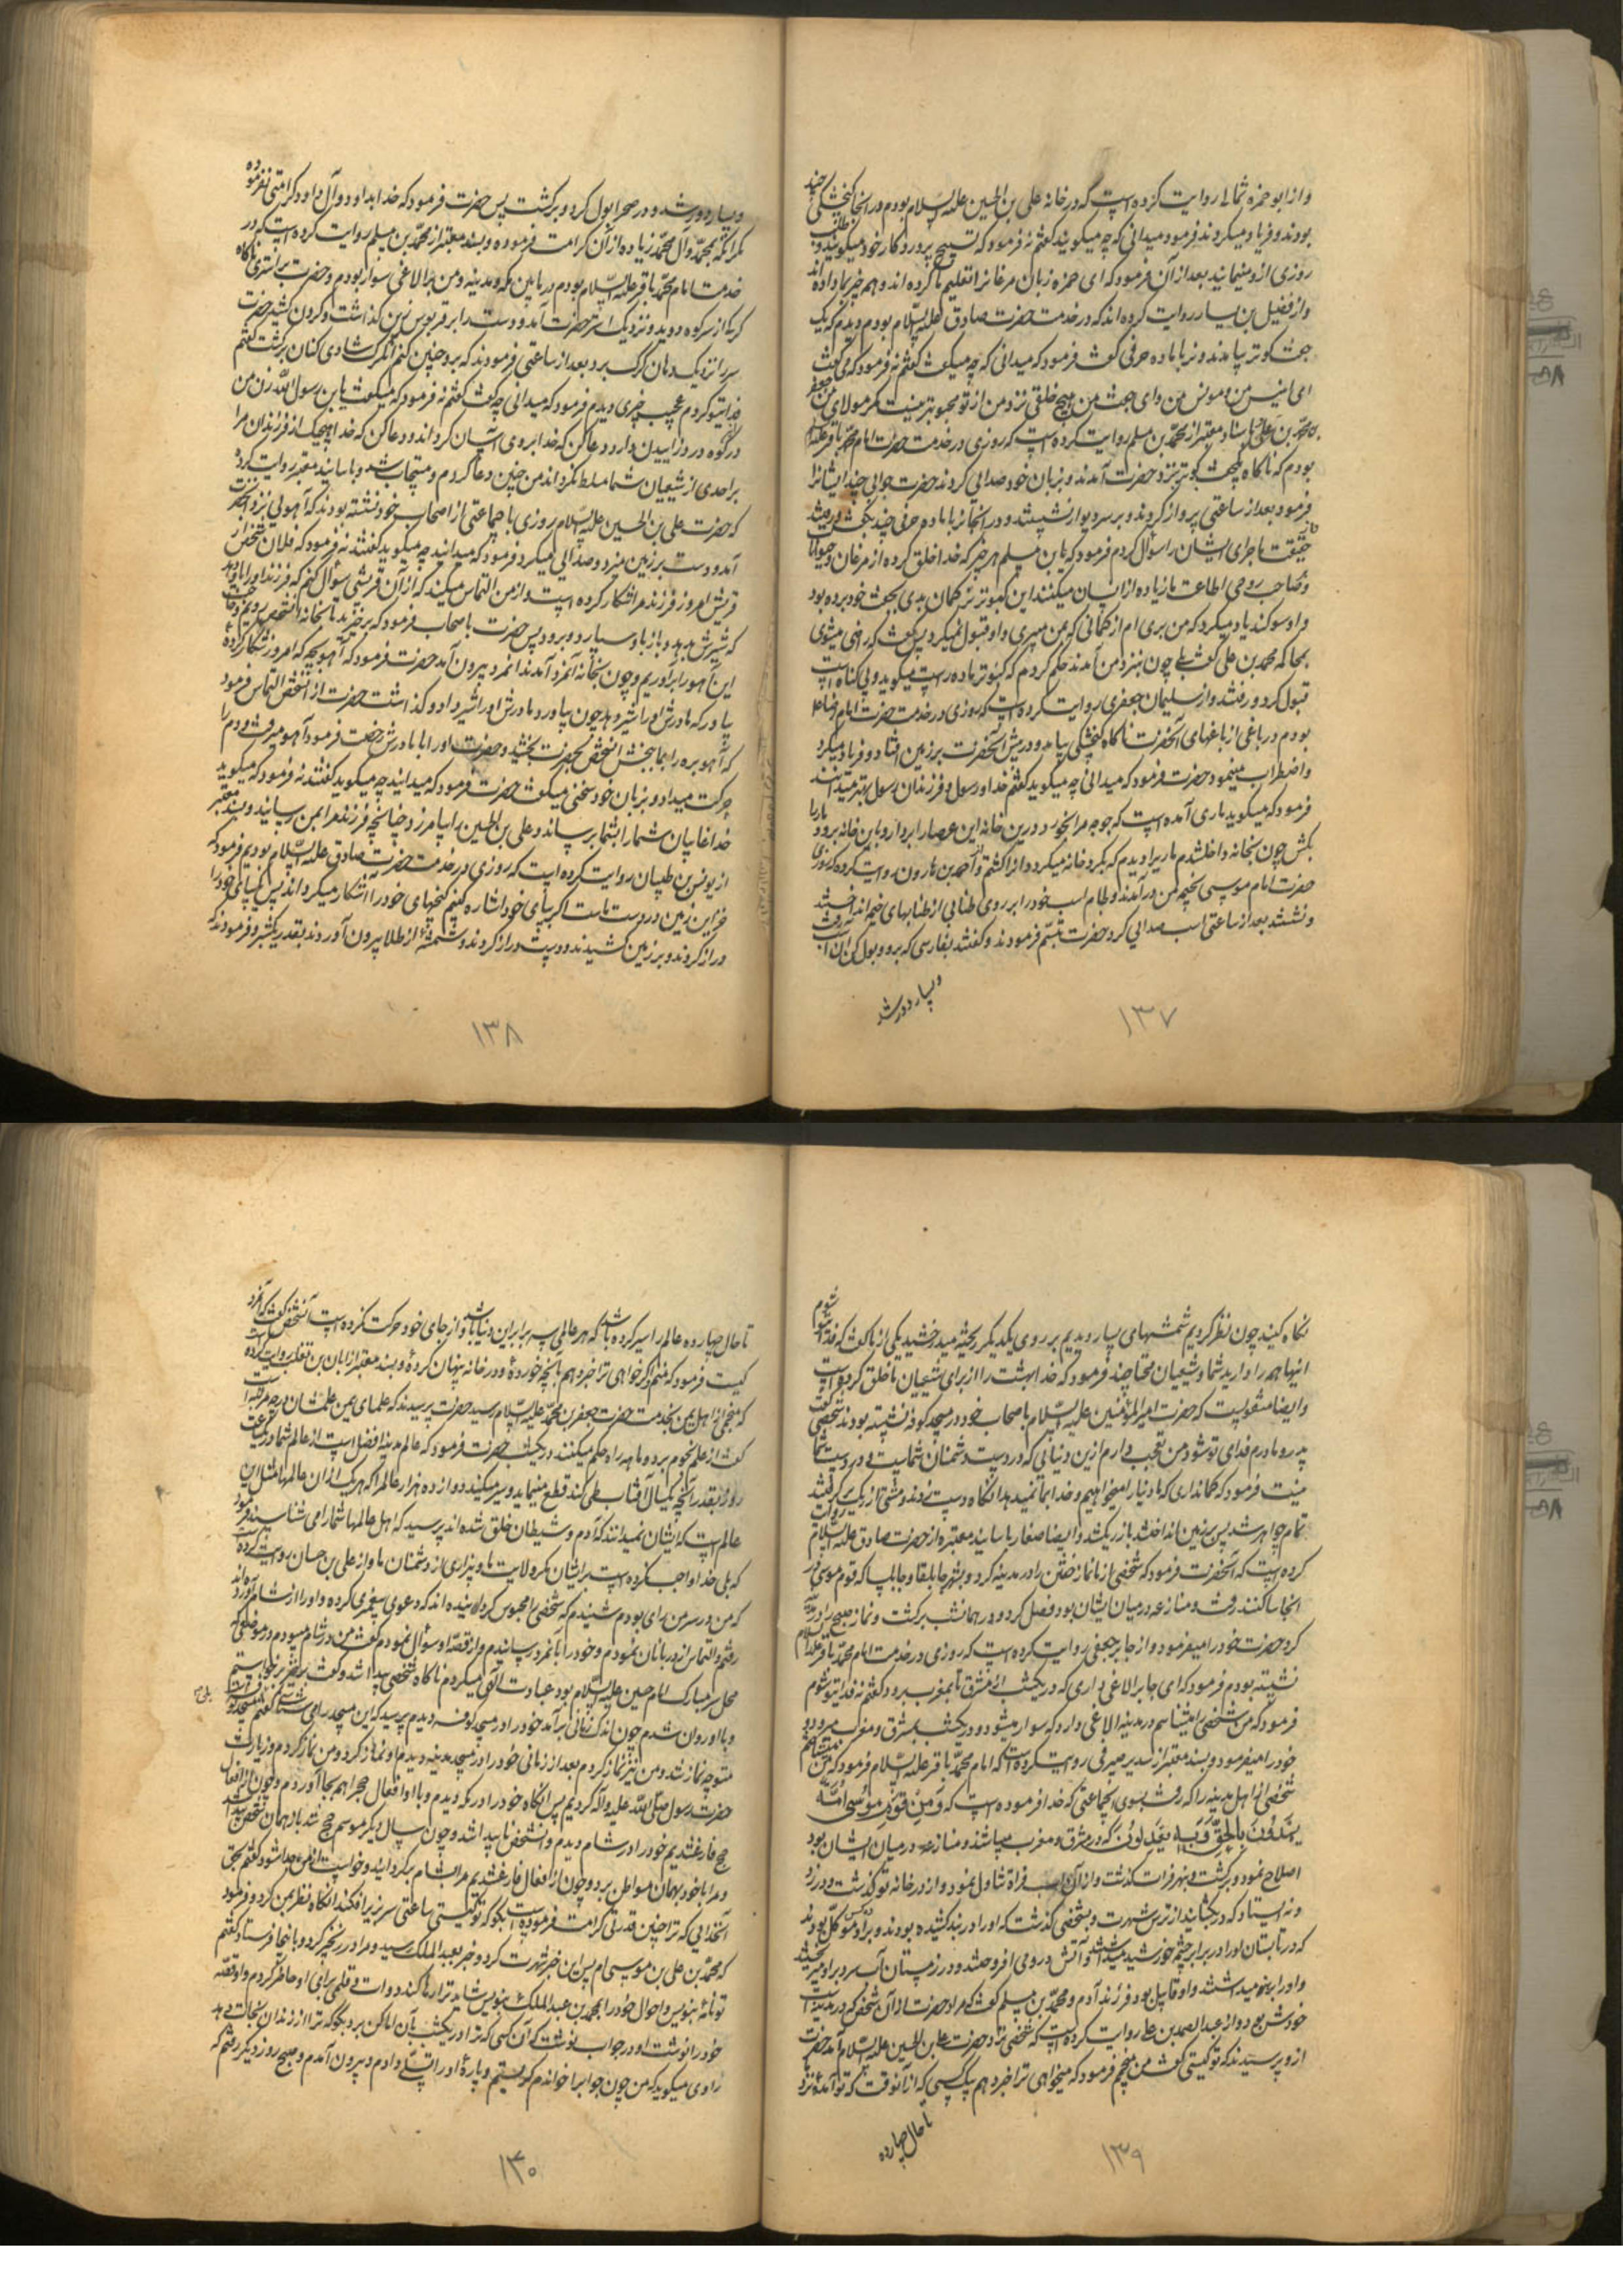 و از ابو حمزه ثمالی روایت کرده است که در خانه علی بن الحسین علیه السلام بودم در آنجا گنجشکی چند
بودند و فریاد میکردند فرمود میدانی که چه میگویند گفتم نه فرمود که تسبیح پروردگار خود میگویند و طلب
روزی ازو مینمایند بعد از آن فرمود که ای حمزه زبان مرغانرا تعلیم ما کرده اند و همه چیز بما داده اند
و از فضیل بن یسار روایت کرده اند که در خدمت حضرت صادق علیه السلام بودم دیدم که یک
جفت کبوتر بیامدند و نر با ماده حرفی گفت فرمود که میدانی که چه میگفت گفتم نه فرمود که می گفت
ای انیس من و مونس من و ای جفت من هیچ خلقی نزد من از تو محبوبتر نیست مگر مولای من جعفر
بن محمد بن علی و باسناد معتبر از محمد بن مسلم روایت کرده است که روزی در خدمت حضرت امام محمد باقر علیه السلام
بودم که ناگاه یکجفت کبوتر نزد حضرت آمدند و بزبان خود صدائی کردند حضرت جوابی چند ایشانرا
فرمود بعد از ساعتی پرواز کردند و بر سر دیوار نشستند و در آنجا نر با ماده حرفی چند بگفت و رفتند
حقیقت ماجرای ایشان را سؤال کردم فرمود که یا بن مسلم هر چیز که خدا خلق کرده از مرغان و حیوانات
و صاحب روحی اطاعت ما زیاده از انسان میکنند این کبوتر نر گمان بدی بجفت خود برده بود
و او سوگند یاد میکرد که من بری ام از گمانی که بمن میبری و او قبول نمیکرد پس گفت که راضی میشوی
بحاکمه محمد بن علی گفت بلی چون بنزد من آمدند حکم کردم که کبوتر ماده راست میگوید و بی گناه است
قبول کرد و رفتند و از سلیمان جعفری روایت کرده است که روزی در خدمت حضرت امام رضا ع
بودم در باغی از باغهای آنحضرت ناگاه گنجشکی بیامد و در پیش آنحضرت بر زمین افتاد و فریاد میکرد
و اضطراب مینمود حضرت فرمود که میدانی چه میگوید گفتم خدا و رسول و فرزندان رسول بهتر میدانند
فرمود که میگوید ماری آمده است که جوجه مرا بخورد درین خانه این عصا را بردار و باین خانه برو و مار را
بکش چون بخانه داخل شدم مار را دیدم که بگرد خانه میگردد او را کشتم و از احمد بن هارون روایت کرده که روزی
حضرت امام موسی بخیمه من در آمدند و لجام اسب خود را بر روی طنابی از طنابهای خیمه انداختند
و نشستند بعد از ساعتی اسب صدائی کرد حضرت تبسم فرمودند و گفتند بفارسی که برو و بول کن آن اسب برفت
و بسیار دور شد
۱۳۷
و بسیار دور شد و در صحرا بول کرد و برگشت پس حضرت فرمود که خدا بداود و آل داود کرامتی نفرموده
مگر آنکه بمحمد و آل محمد زیاده از آن کرامت فرموده و بسند معتبر از محمد بن مسلم روایت کرده است که در
خدمت امام محمد باقر علیه السلام بودم در مابین مکه و مدینه و من بر الاغی سوار بودم و حضرت بر استری ناگاه
گرگی از سر کوه دوید و نزدیک استر حضرت آمد و دست را بر قربوس زین گذاشت و گردن کشید حضرت
سر را نزدیک دهان گرگ برد بعد از ساعتی فرمودند که برو چنین کنم آن گرگ شادی کنان برگشت گفتم
فدایتو گردم عجب چیزی دیدم فرمود که میدانی چه گفت گفتم نه فرمود که میگفت یا بن رسول الله زن من
درین کوه درد زاییدن دارد دعا کن که خدا بر وی آسان گرداند و دعا کن که خدا هیچیک از فرزندان مرا
بر احدی از شیعیان شما مسلط نگرداند من چنین دعا کردم و مستجاب شد و باسانید معتبر روایت کرده
که حضرت علی بن الحسین علیه السلام روزی با جماعتی از اصحاب خود نشسته بودند که آهوئی نزد آنحضرت
آمد و دست بر زمین میزد و صدائی میکرد فرمود که میدانید چه میگوید گفتند نه فرمود که فلان شخص از
قریش امروز فرزند مرا شکار کرده است و از من التماس میکند که از آن قریشی سؤال کنم که فرزند او را باو دهد
که شیرش بدهد و باز باو سپارد و برود پس حضرت باصحاب فرمود که برخیزید تا بخانه آنشخص رویم و حاجت
این آهو را برآوریم و چون بخانه آنمرد آمدند آنمرد بیرون آمد حضرت فرمود که آهو بچه که امروز شکار کرده
بیاور که مادرش او را شیر دهد چون بیاورد مادرش او را شیر داد و گذاشت حضرت از آنشخص التماس فرمود
که آهو بره را بما ببخش آنشخص بحضرت بخشید و حضرت او را با مادرش رخصت فرمود آهو میرفت و دم را
حرکت میداد و بزبان خود سخنی میگفت حضرت فرمود که میدانید چه میگوید گفتند نه فرمود که میگوید
خدا غایبان شما را بشما برساند و علی بن الحسین را بیامرزد چنانچه فرزند مرا بمن رسانید و بسند معتبر
از یونس بن ظبیان روایت کرده است که روزی در خدمت حضرت صادق علیه السلام بودیم فرمود که
خزاین زمین در دست ماست اگر بپای خود اشاره کنم گنجهای خود را آشکار میگرداند پس یکپای خود را
دراز کردند و بر زمین کشیدند و دست دراز کردند و شمشه از طلا بیرون آوردند بقدر یکشبر و فرمودند که
۱۳۸
نگاه کنید چون نظر کردیم شمشهای بسیار دیدیم بر روی یکدیگر ریخته میدرخشید یکی از ما گفت که فدای تو شوم
اینها همه را دارید شما و شیعیان محتاجند فرمود که خدا بهشت را از برای شیعیان ما خلق کرده است
و ایضا منقولست که حضرت امیر المؤمنین علیه السلام با اصحاب خود در مسجد کوفه نشسته بودند شخصی گفت
پدر و مادرم فدای تو شود من تعجب دارم ازین دنیایی که در دست دشمنان شماست و در دست شما
نیست فرمود که گمان داری که ما دنیا را میخواهیم و خدا بما نمیدهد آنگاه دست زدند و مشتی از ریگ گرفتند
تمام جواهر شد پس بر زمین انداختند باز ریگ شد و ایضا صفار باسانید معتبره از حضرت صادق علیه السلام روایت
کرده است که آنحضرت فرمود که شخصی از ما نماز خفتن را در مدینه کرد و بشهر جابلقا و جابلسا که قوم موسی در
آنجا ساکنند رفت و منازعه در میان ایشان بود فصل کرد و در همانشب برگشت و نماز صبح را در مدینه
کرد حضرت خود را میفرمود و از جابر جعفی روایت کرده است که روزی در خدمت امام محمد باقر علیه السلام
نشسته بودم فرمود که ای جابر الاغی داری که در یکشب از مشرق تا بمغرب برود گفتم نه فدایتو شوم
فرمود که من شخصی را میشناسم در مدینه الاغی دارد که سوار میشود و در یکشب بمشرق و مغرب میرود و
خود را میفرمود و بسند معتبر از سدیر صیرفی روایت کرده است که امام محمد باقر علیه السلام فرمود که من میشناسم
شخصی از اهل مدینه را که رفت بسوی جماعتی که خدا فرموده است که وَمِن قَومِ مُوسی اُمَّةٌ
یَهدُونَ بِالحَقِّ وَبِهِ یَعدِلُونَ که در مشرق و مغرب میباشند و منازعه در میان ایشان بود
اصلاح نمود و برگشت و بنهر فرات گذشت و از آن آب فرات تناول نمود و از در خانه تو گذشت و در زد
و نه ایستاد که در بگشایند از ترس شهرت و بشخصی گذشت که او را در بند کشیده بودند و بر او ده کس موکل بودند
که در تابستان او را در برابر چشمه خورشید میداشتند و آتش در دور وی می افروختند و در زمستان آب سرد بر او میریختند
و او را میداشتند و او قابیل بود فرزند آدم و محمد بن مسلم گفت که مراد حضرت از آن شخص که در مدینه است
خودش بود و از عبد الصمد بن علی روایت کرده است که شخصی نزد حضرت علی بن الحسین علیه السلام آمد حضرت
ازو پرسیدند که تو کیستی گفت من منجمم فرمود که میخواهی ترا خبر دهم بیک کسی که از آنوقت که تو آمده نزد ما
تا حال چهارده
۱۳۹
تا حال چهارده عالم را سیر کرده باشد که هر عالمی سه برابر این دنیا باشد و از جای خود حرکت نکرده است آنشخص گفت که آنمرد
کیست فرمود که منم و اگر خواهی ترا خبر دهم بآنچه خورده و در خانه پنهان کرده و بسند معتبر از ابان بن تغلب روایت کرده است
که شخصی از اهل یمن بخدمت حضرت جعفر بن محمد علیه السلام رسید حضرت پرسیدند که علمای یمن علمشان در چه مرتبه است
گفت از علم نجوم دو ماهه راه حکم میکنند در یکشب حضرت فرمود که عالم مدینه افضل است از عالم شما در یکساعت
روز بقدر آنچه یکسال آفتاب طی کند قطع مینماید و سیر میکند دوازده هزار عالم را که هر یک از آن عالمها مثل این
عالم است که ایشان نمیدانند که آدم و شیطان خلق شده اند پرسید که اهل عالمها شما را می شناسند فرمود
که بلی خدا واجب نکرده است بر ایشان مگر ولایت ما و بیزاری از دشمنان ما و از علی بن حسان روایت کرده
که من در سر من رای بودم شنیدم که شخصی را محبوس کرده اند که دعوی پیغمبری کرده و او را از شام آورده اند
رفتم و التماس از دربانان نمودم و خود را بآنمرد رسانیدم و از قصه او سؤال نمودم گفت من در شام میبودم در موضعی که
محل سر مبارک امام حسین علیه السلام بود عبادت الهی میکردم ناگاه شخصی پیدا شد و گفت برخیز برخواستم
و با او روان شدم چون اندک زمانی برآمد خود را در مسجد کوفه دیدم پرسید که این مسجد را می شناسی گفتم بلی مسجد کوفه است
متوجه نماز شد و من نیز نماز کردم بعد از زمانی خود را در مسجد مدینه دیدم او نماز کرد و من نماز کردم و زیارت
حضرت رسول صلی الله علیه و آله کردیم پس آنگاه خود را در مکه دیدم و با او افعال حج را هم بجا آوردم و چون از افعال
حج فارغ شدیم خود را در شام دیدم و آنشخص ناپیدا شد و چون سال دیگر موسم حج شد باز همان شخص پیدا شد
و مرا با خود بهمان مواطن برد و چون از افعال فارغ شدیم مرا بشام برگردانید و خواست که از من جدا شود گفتم بحق
آنخدائی که ترا چنین قدرتی کرامت فرموده است بگو که تو کیستی ساعتی سر بزیر افکند آنگاه نظر بمن کرد و فرمود
که محمد بن علی بن موسی ام پس این خبر شهرت کرد و خبر بعبد الملک رسید و مرا در زنجیر کرد و باینجا فرستاد گفتم
تو نامه بنویس و احوال خود را بمحمد بن عبد الملک بنویس شاید ترا رها کند دوات و قلمی برای او حاضر کردم و او قصه
خود را نوشت او در جواب نوشت که آن کسی که ترا در یکشب بآن اماکن برد بگو که ترا از زندان نجات دهد
راوی میگوید که من چون جواب را خواندم گریستم و پاره او را تسلی دادم و بیرون آمدم و صبح روز دیگر رفتم که
۱۳۰